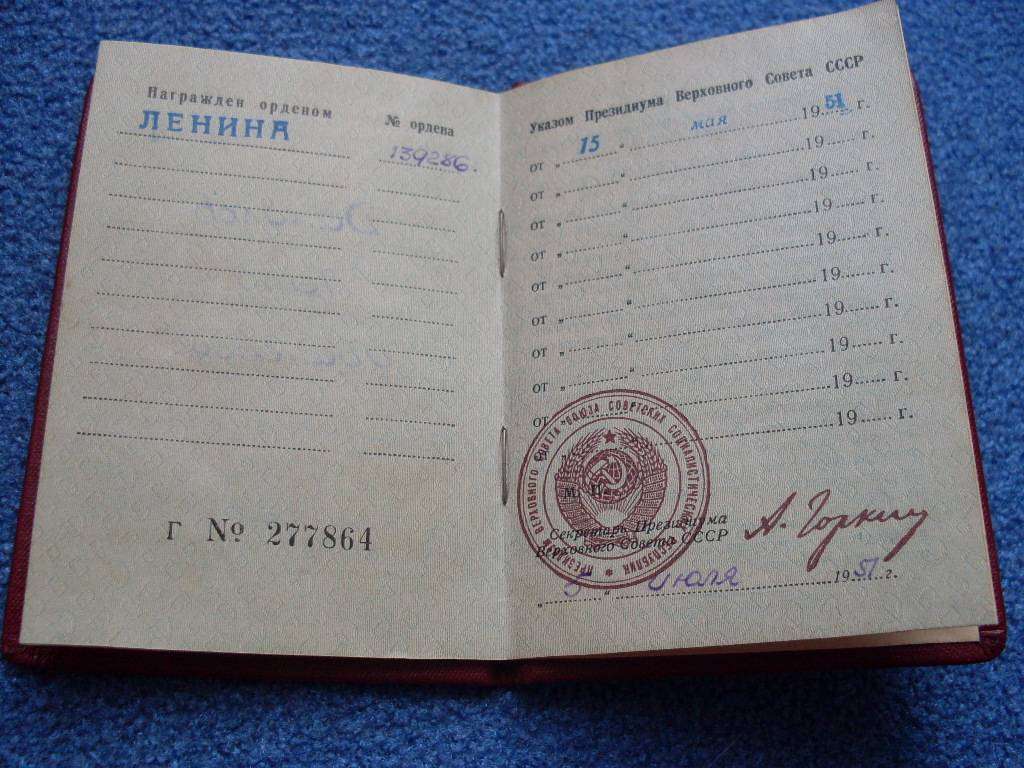 Награжден орденом
ЛЕНИНА
№ ордена
139286.
Г № 277864
Указом Президиума Верховного Совета СССР
от „ 15 “ мая 1951 г.
от „ “ 19 г.
от „ “ 19 г.
от „ “ 19 г.
от „ “ 19 г.
от „ “ 19 г.
от „ “ 19 г.
от „ “ 19 г.
от „ “ 19 г.
от „ “ 19 г.
ПРЕЗИДИУМ ВЕРХОВНОГО СОВЕТА СОЮЗА СОВЕТСКИХ СОЦИАЛИСТИЧЕСКИХ РЕСПУБЛИК
М. П.
Секретарь Президиума
Верховного Совета СССР
А. Горкин
„ 5 “ июля 1951 г.